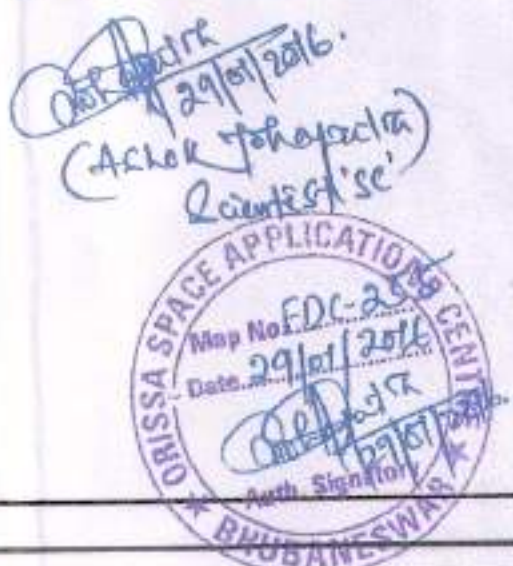 29/01/2016.
(Ashok
Scientist 'SC'
ORISSA SPACE APPLICATIONS CENTRE
Map No. FDC-255
Date 29/01/2016
29/01/2016.
Auth. Signatory
★ BHUBANESWAR ★